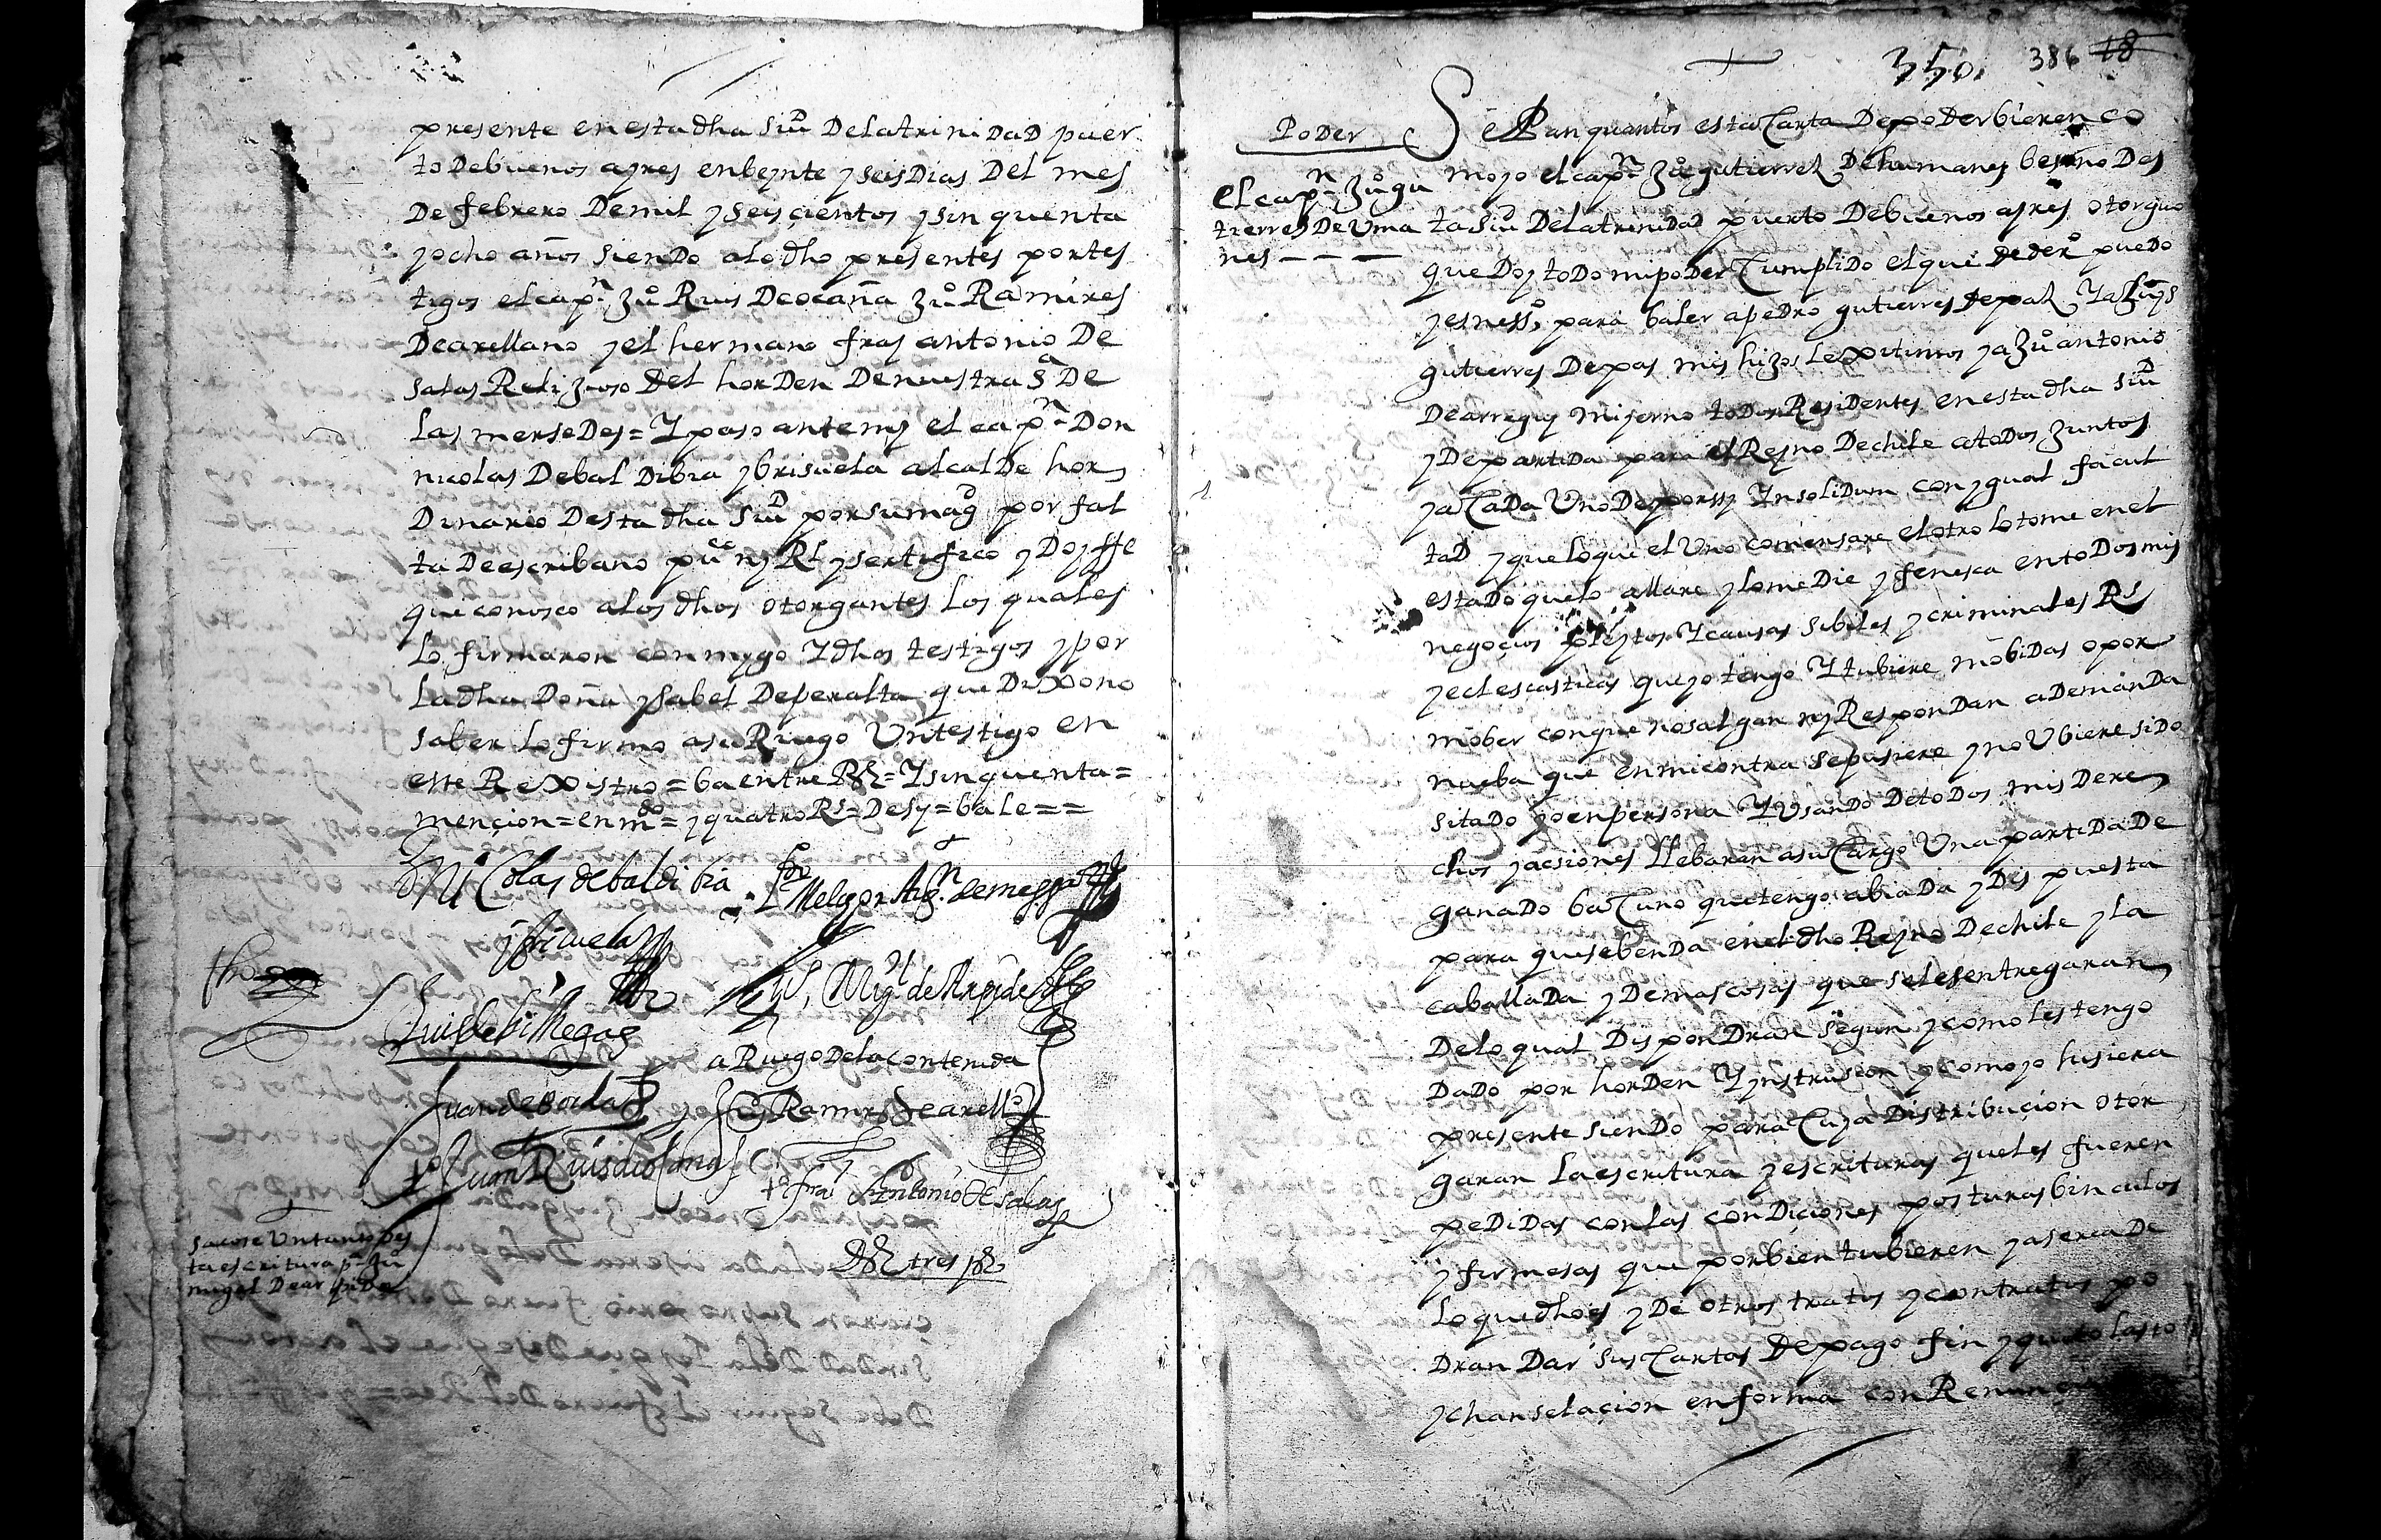 presente en esta dha siud De la trinidad puer
to De buenos ayres en beynte y seis Dias Del mes
De febrero De mil y seis çientos y sin quenta
y ocho años siendo a lo dho presentes por tes
tigos el capn Ju Ruis De ocaña Ju Ramires
De arellano y el hermano fray antonio De
salas Relijioso del horDen De nuestra Sa De
Las merseDes = Y paso ante my el capn Don
nicolas De balDibia y brisuela alcalDe hor
Dinario Desta dha siud por su magd por fal
ta De escribano puco ny Rl y sertifico y Doy ffe
que conosco a los dhos otorgantes Los quales
Lo firmaron con mygo Y dhos testigos y por
La dha Doña ysabel De peralta que Dixo no
saber Lo firmo a su Ruego Un testigo en
este Rexistro = ba entre Rs = Y sinquenta =
mençion = en mdo = y quatro Rs = Desy = bale = =
D. Nicolas de baldibia
y brizuela
Luis de billegas
Migl de Arpide
a Ruego De la contenida
Ju Ramires de arello
to Juan Ruis de ocaña
to fray Antonio de salas
Ds tres ps
sacose Un tanto Des
ta escritura pa Ju
migel De arpiDe
350. 386 18
PoDer
el capn Ju gu
tierres De Uma
nes — — —
Sepan quantos esta Carta De poDer bieren co
mo yo el capn Ju gutierres De humanes besino Des
ta siud De la trinidad puerto De buenos ayres otorguo
que Doy toDo mi poDer Cumplido el que de dero pueDo
y es nesso para baler a peDro gutierres de pas Y a Luys
gutierres De pas mis hijos Lexitimos y a Ju antonio
De arreguy mi yerno toDos ResiDentes en esta dha siud
y De partiDa para el Reyno De chile a toDos juntos
y a CaDa Uno De por ssy Ynsolidum con ygual facul
taD y que lo que el Uno comensare el otro lo tome en el
estado que lo allare y lo meDie y fenesca en toDos mis
negoçios pleytos Y causas sibiles y criminales Rs
y eclesiasticas que yo tengo Y tubiere mobiDas o por
mober con que no salgan ny ResponDan a DemanDa
nueba que en mi contra se pusiere y no Ubiere siDo
sitaDo yo en persona Y UsanDo De toDos mis Dere
chos y acsiones Llebaran a su Cargo Una partiDa De
ganaDo baCuno que tengo abiaDa y Dispuesta
para que se benDa en el dho Reyno De chile y La
caballaDa y Demas cosas que se les entregaran
De lo qual DisponDran segun y como les tengo
DaDo por horDen Y ynstrusion y como yo hisiera
presente sienDo para Cuya Distribuçion otor
garan La escritura y escrituras que les fueren
peDiDas con las conDiciones posturas binculos
y firmesas que por bien tubieren y aserca De
Lo que dho es y De otros tratos y contratos po
Dran Dar sus Cartas De pago fin y quito lasto
y chanselaçion en forma con